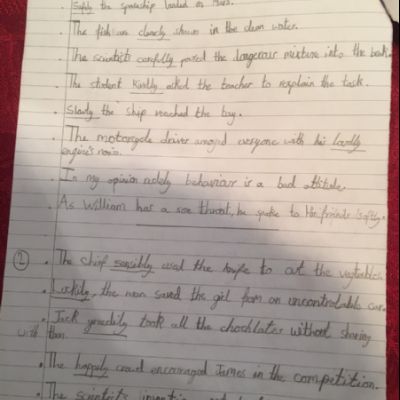 Safely the spaceship landed on Mars.
. The fish are clearly shown in the clean water.
. The scientist carefully poured the dangerous mixture into the
. The student kindly asked the teacher to explain the task.
. Slowly the ship reached the bay.
. The motorcycle driver annoyed everyone with his loudly
engine's noise.
. In my opinion behaviour is a bad attitude.
. As William has a sore throat, he spoke to his friends softly.
② . The chief sensibly used the knife to cut the vegetables.
. Luckily, the man saved the girl from an uncontrolable car.
. Jack greedily took all the chochlates without sharing
with
. The happily crowd encouraged James in the competition.
. The scientists